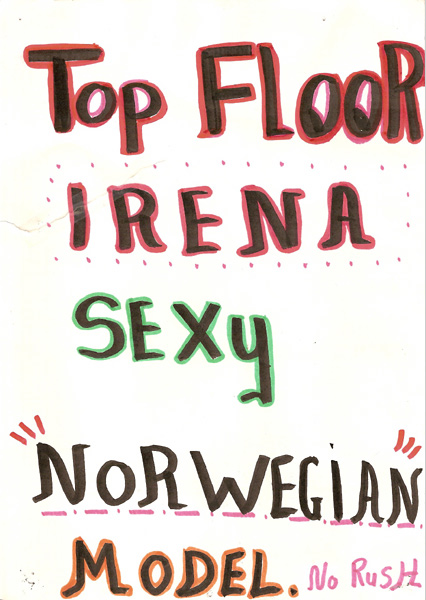 Top FLOOR
IRENA
SEXy
"NORWEGiAN"
MODEL. No RusH